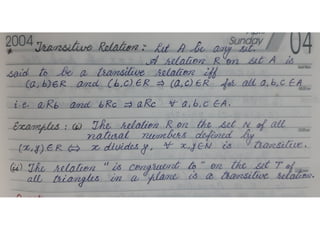 2004 Sunday 04
* Transitive Relation : Let A be any set.
A relation R on set A is
said to be a transitive relation iff
(a,b)∈R and (b,c)∈R ⇒ (a,c)∈R for all a,b,c ∈A
i.e. aRb and bRc ⇒ aRc ∀ a,b,c ∈A.
Examples : (i) The relation R on the set N of all
natural numbers defined by
(x,y)∈R ⇔ x divides y, ∀ x,y∈N is transitive.
(ii) The relation "is congruent to" on the set T of
all triangles in a plane is a transitive relation.